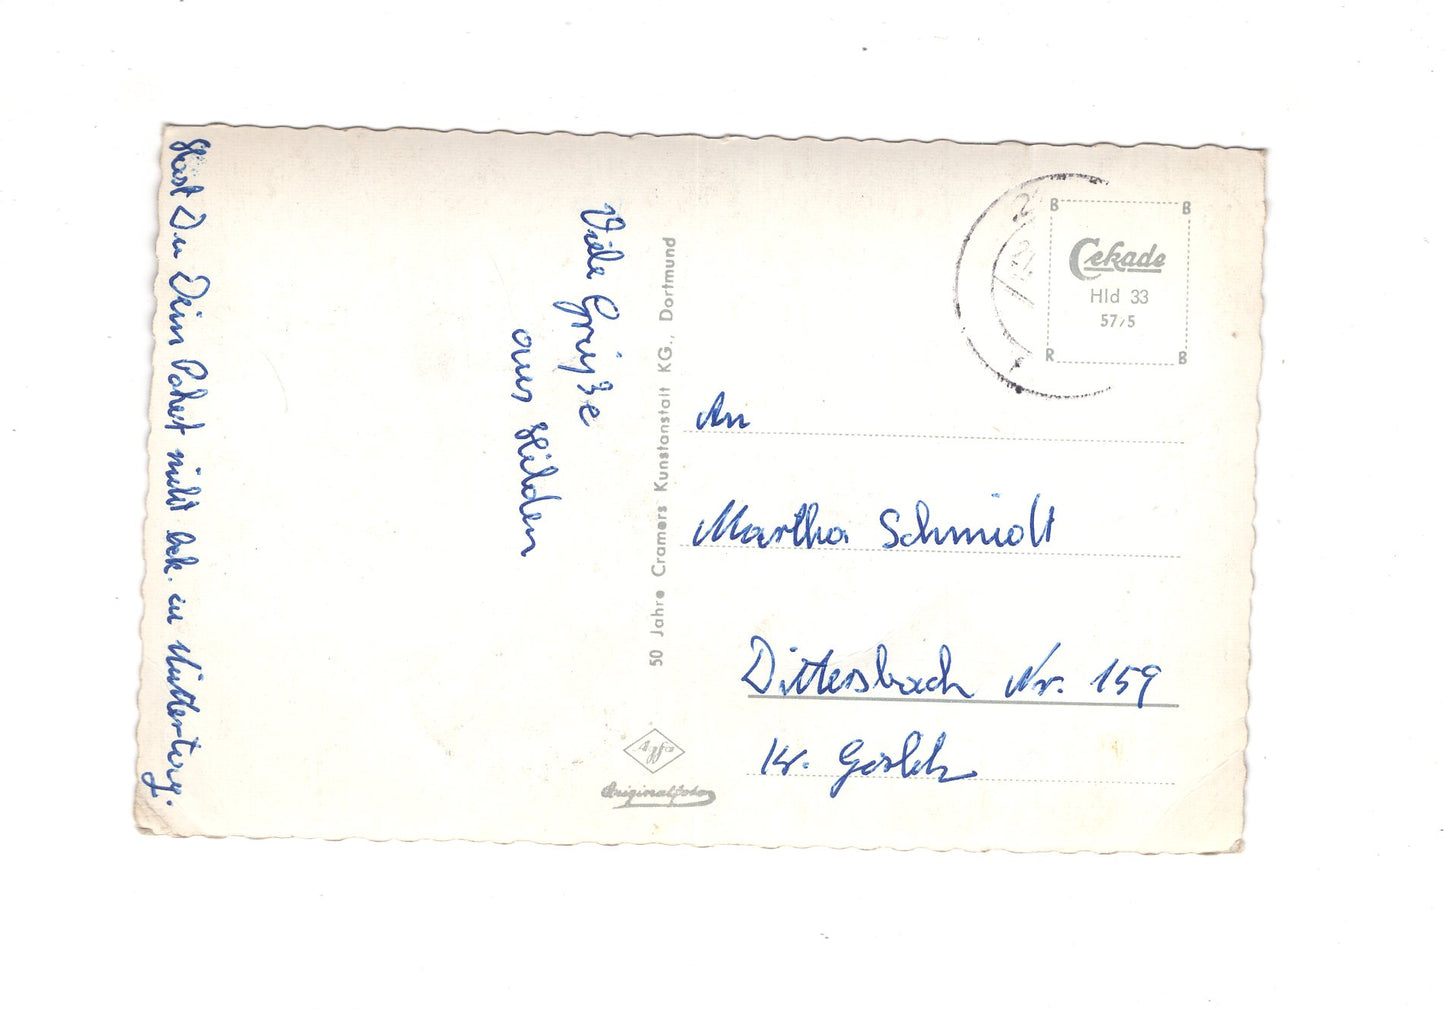 Hast Du Dein Paket nicht bek. zu Muttertag.
Viele Grüße
aus Hilden
50 Jahre Cramers Kunstanstalt KG., Dortmund
Agfa
Originalfoto
B B
Cekade
Hld 33
57/5
R B
An
Martha Schmidt
Dittersbach Nr. 159
Kr. Görlitz